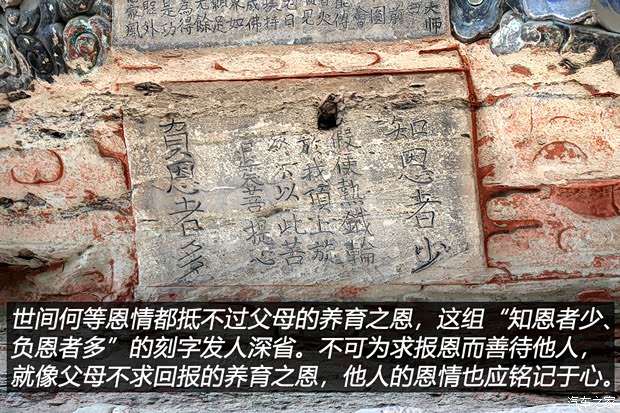 知恩者少
假使熱鐵輪
於我頂上旋
終不以此苦
退失菩提心
負恩者多
世间何等恩情都抵不过父母的养育之恩，这组“知恩者少、
负恩者多”的刻字发人深省。不可为求报恩而善待他人，
就像父母不求回报的养育之恩，他人的恩情也应铭记于心。
汽车之家